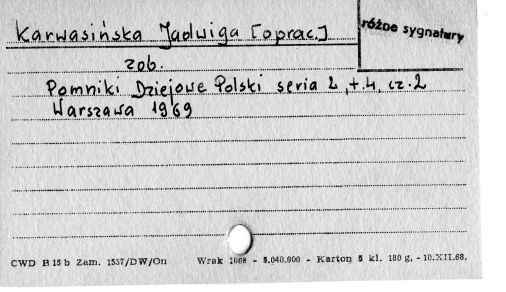 Karwasińska Jadwiga [oprac.]
różne sygnatury
zob.
Pomniki Dziejowe Polski seria 2, t.4, cz.2
Warszawa 1969
CWD B 15 b Zam. 1537/DW/On Wrak 1068 - 5.040.000 - Karton 5 kl. 180 g, - 10.XII.68.